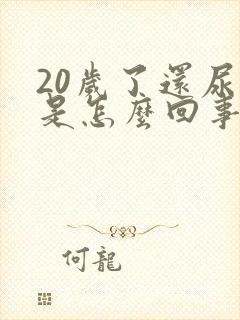 20歲了還尿
是怎麼回事
何龍